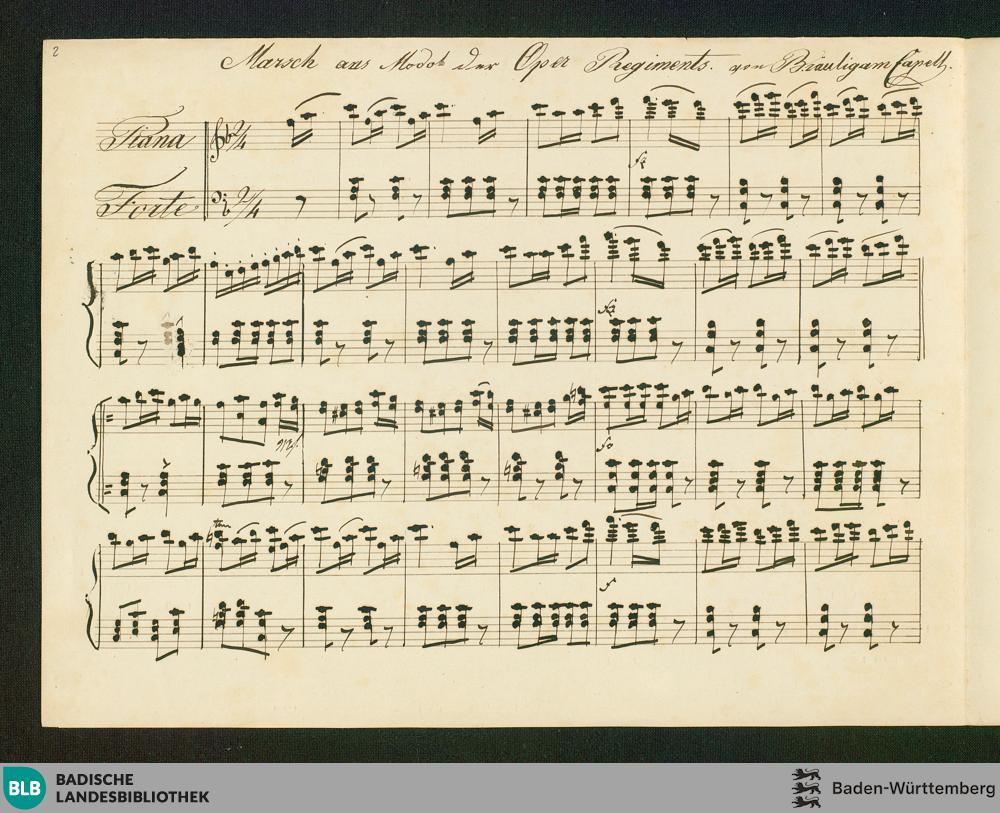 2
Marsch aus Modot der Oper Regiments. von Bräuligam Capell.
Piano
2/4
Forte
2/4
fz
fz
mf.
fo
tem
f
BLB
BADISCHE
LANDESBIBLIOTHEK
Baden-Württemberg